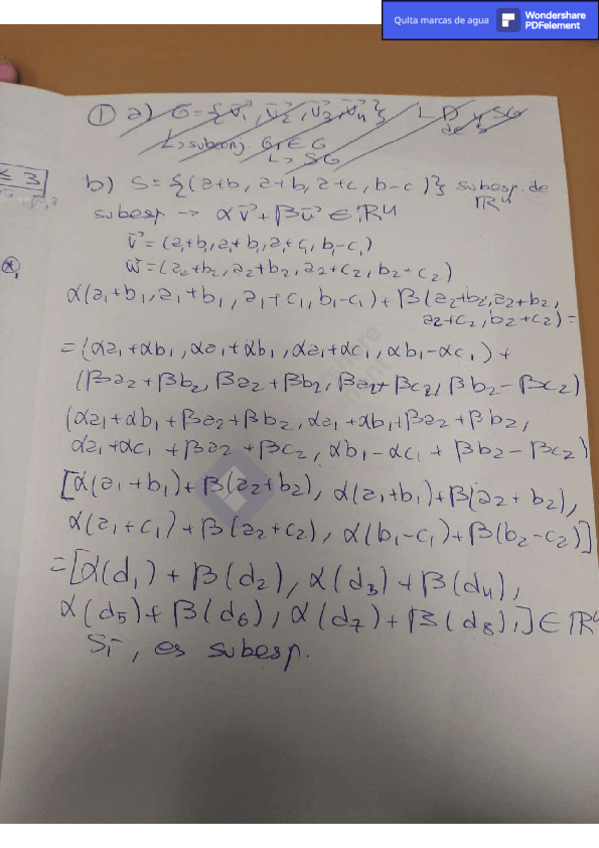 Quita marcas de agua Wondershare PDFelement
① a) G = {v⃗1, v⃗2, v⃗3, v⃗4} LD y SG de S
↳ subconj. G1 ∈ G
↳ SG
≤ 3
b) S = {(a+b, a+b, a+c, b-c)} subesp. de ℝ4
subesp → αv⃗ + βu⃗ ∈ ℝ4
v⃗ = (a1+b1, a1+b1, a1+c1, b1-c1)
w⃗ = (a2+b2, a2+b2, a2+c2, b2-c2)
α(a1+b1, a1+b1, a1+c1, b1-c1) + β(a2+b2, a2+b2,
a2+c2, b2+c2) =
= (αa1+αb1, αa1+αb1, αa1+αc1, αb1-αc1) +
(βa2+βb2, βa2+βb2, βa2+βc2, βb2-βc2)
(αa1+αb1+βa2+βb2, αa1+αb1+βa2+βb2,
αa1+αc1+βa2+βc2, αb1-αc1+βb2-βc2)
[α(a1+b1)+β(a2+b2), α(a1+b1)+β(a2+b2),
α(a1+c1)+β(a2+c2), α(b1-c1)+β(b2-c2)]
= [α(d1)+β(d2), α(d3)+β(d4),
α(d5)+β(d6), α(d7)+β(d8),] ∈ ℝ4
Sí, es subesp.